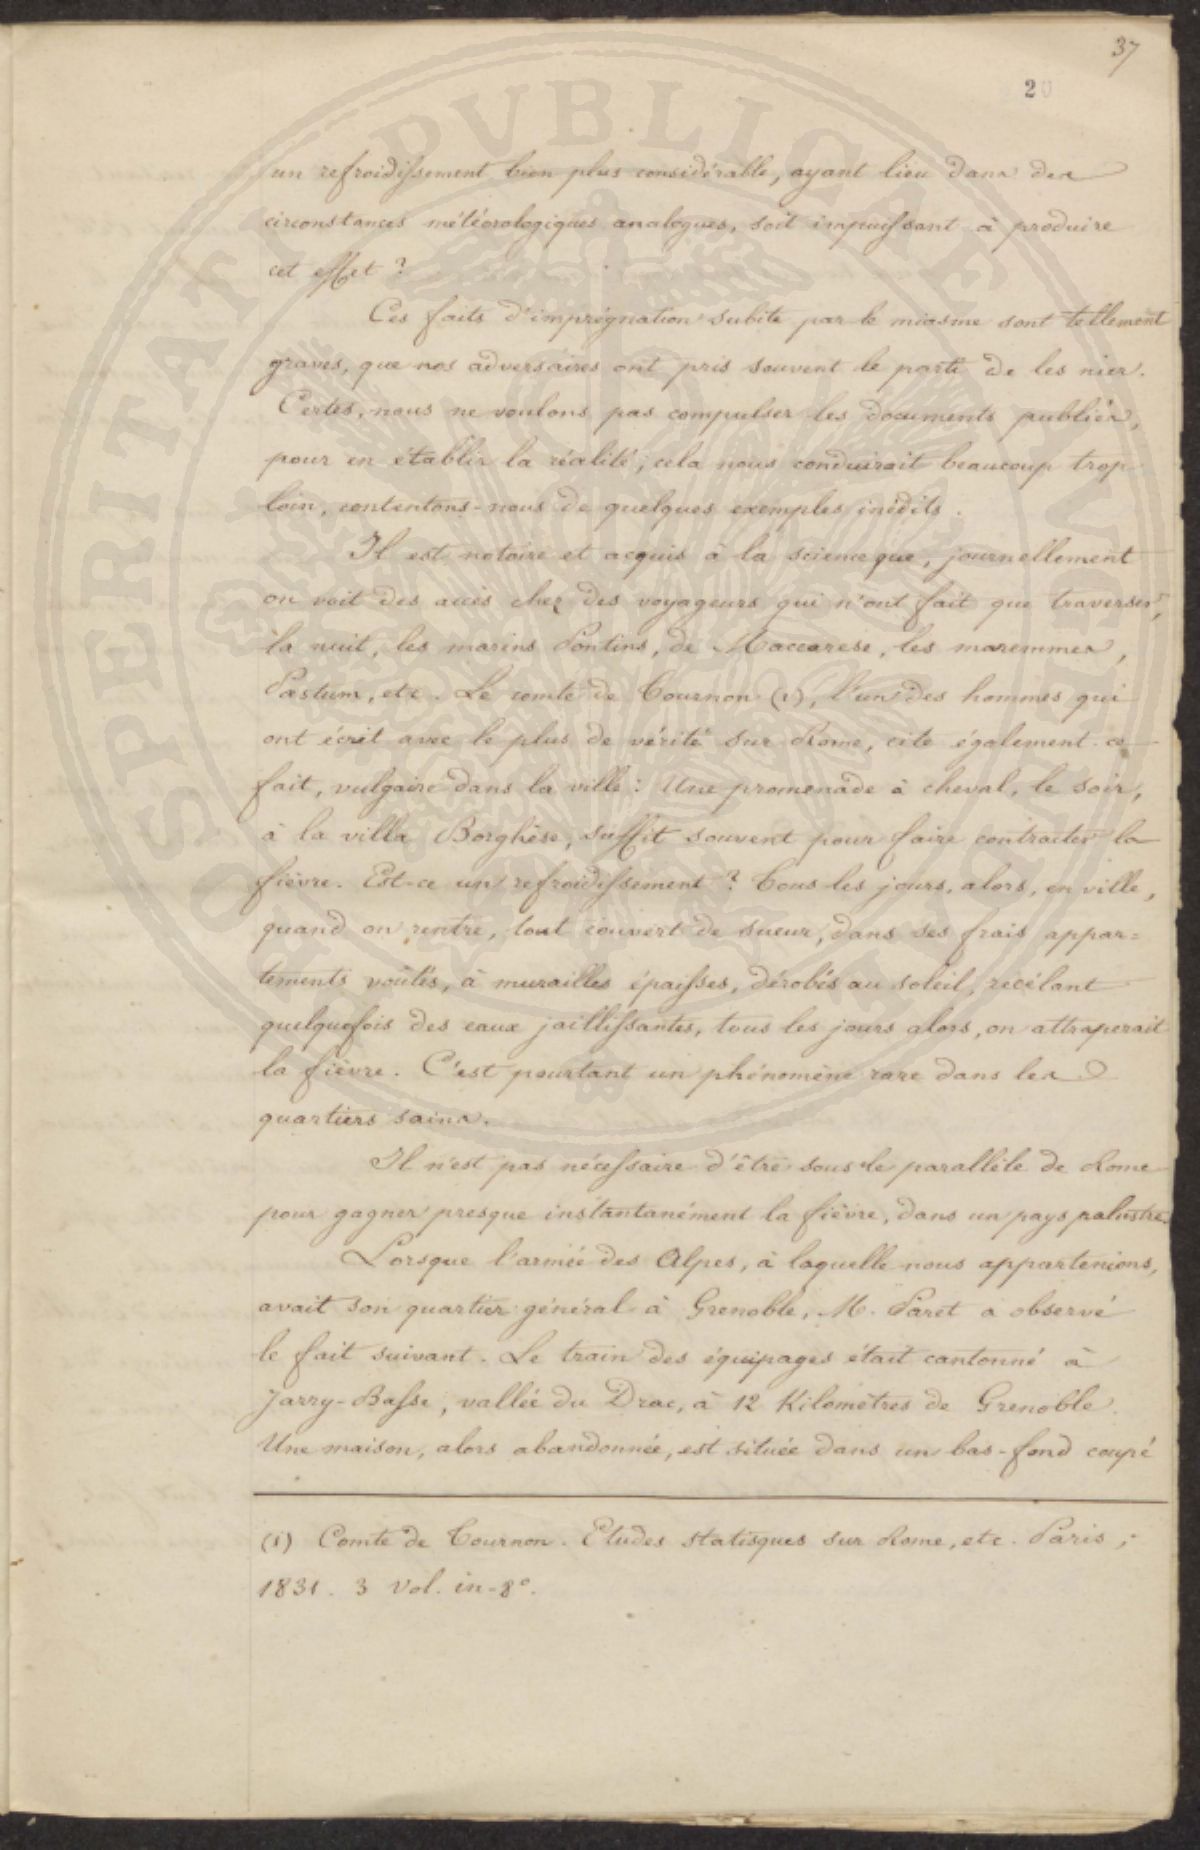 37
20
un refroidissement bien plus considérable, ayant lieu dans des
circonstances météorologiques analogues, soit impuissant à produire
cet effet ?
Ces faits d'imprégnation subite par le miasme sont tellement
graves, que nos adversaires ont pris souvent le parti de les nier.
Certes, nous ne voulons pas compulser les documents publiés,
pour en établir la réalité ; cela nous conduirait beaucoup trop
loin, contentons-nous de quelques exemples inédits.
Il est notoire et acquis à la science que, journellement
on voit des accès chez des voyageurs qui n'ont fait que traverser,
la nuit, les marins Pontins, de Maccarese, les maremmes,
Pæstum, etc. Le comte de Tournon (1), l'un des hommes qui
ont écrit avec le plus de vérité sur Rome, cite également ce
fait, vulgaire dans la ville : Une promenade à cheval, le soir,
à la villa Borghèse, suffit souvent pour faire contracter la
fièvre. Est-ce un refroidissement ? Tous les jours, alors, en ville,
quand on rentre, tout couvert de sueur, dans ses frais appar=
tements voûtés, à murailles épaisses, dérobés au soleil, recélant
quelquefois des eaux jaillissantes, tous les jours alors, on attraperait
la fièvre. C'est pourtant un phénomène rare dans les
quartiers sains.
Il n'est pas nécessaire d'être sous le parallèle de Rome
pour gagner presque instantanément la fièvre, dans un pays palustre.
Lorsque l'armée des Alpes, à laquelle nous appartenions,
avait son quartier général à Grenoble, M. Paret a observé
le fait suivant. Le train des équipages était cantonné à
Jarry-Basse, vallée du Drac, à 12 Kilomètres de Grenoble.
Une maison, alors abandonnée, est située dans un bas-fond coupé
(1) Comte de Tournon. Etudes statisques sur Rome, etc. Paris ;
1831. 3 Vol. in-8°.